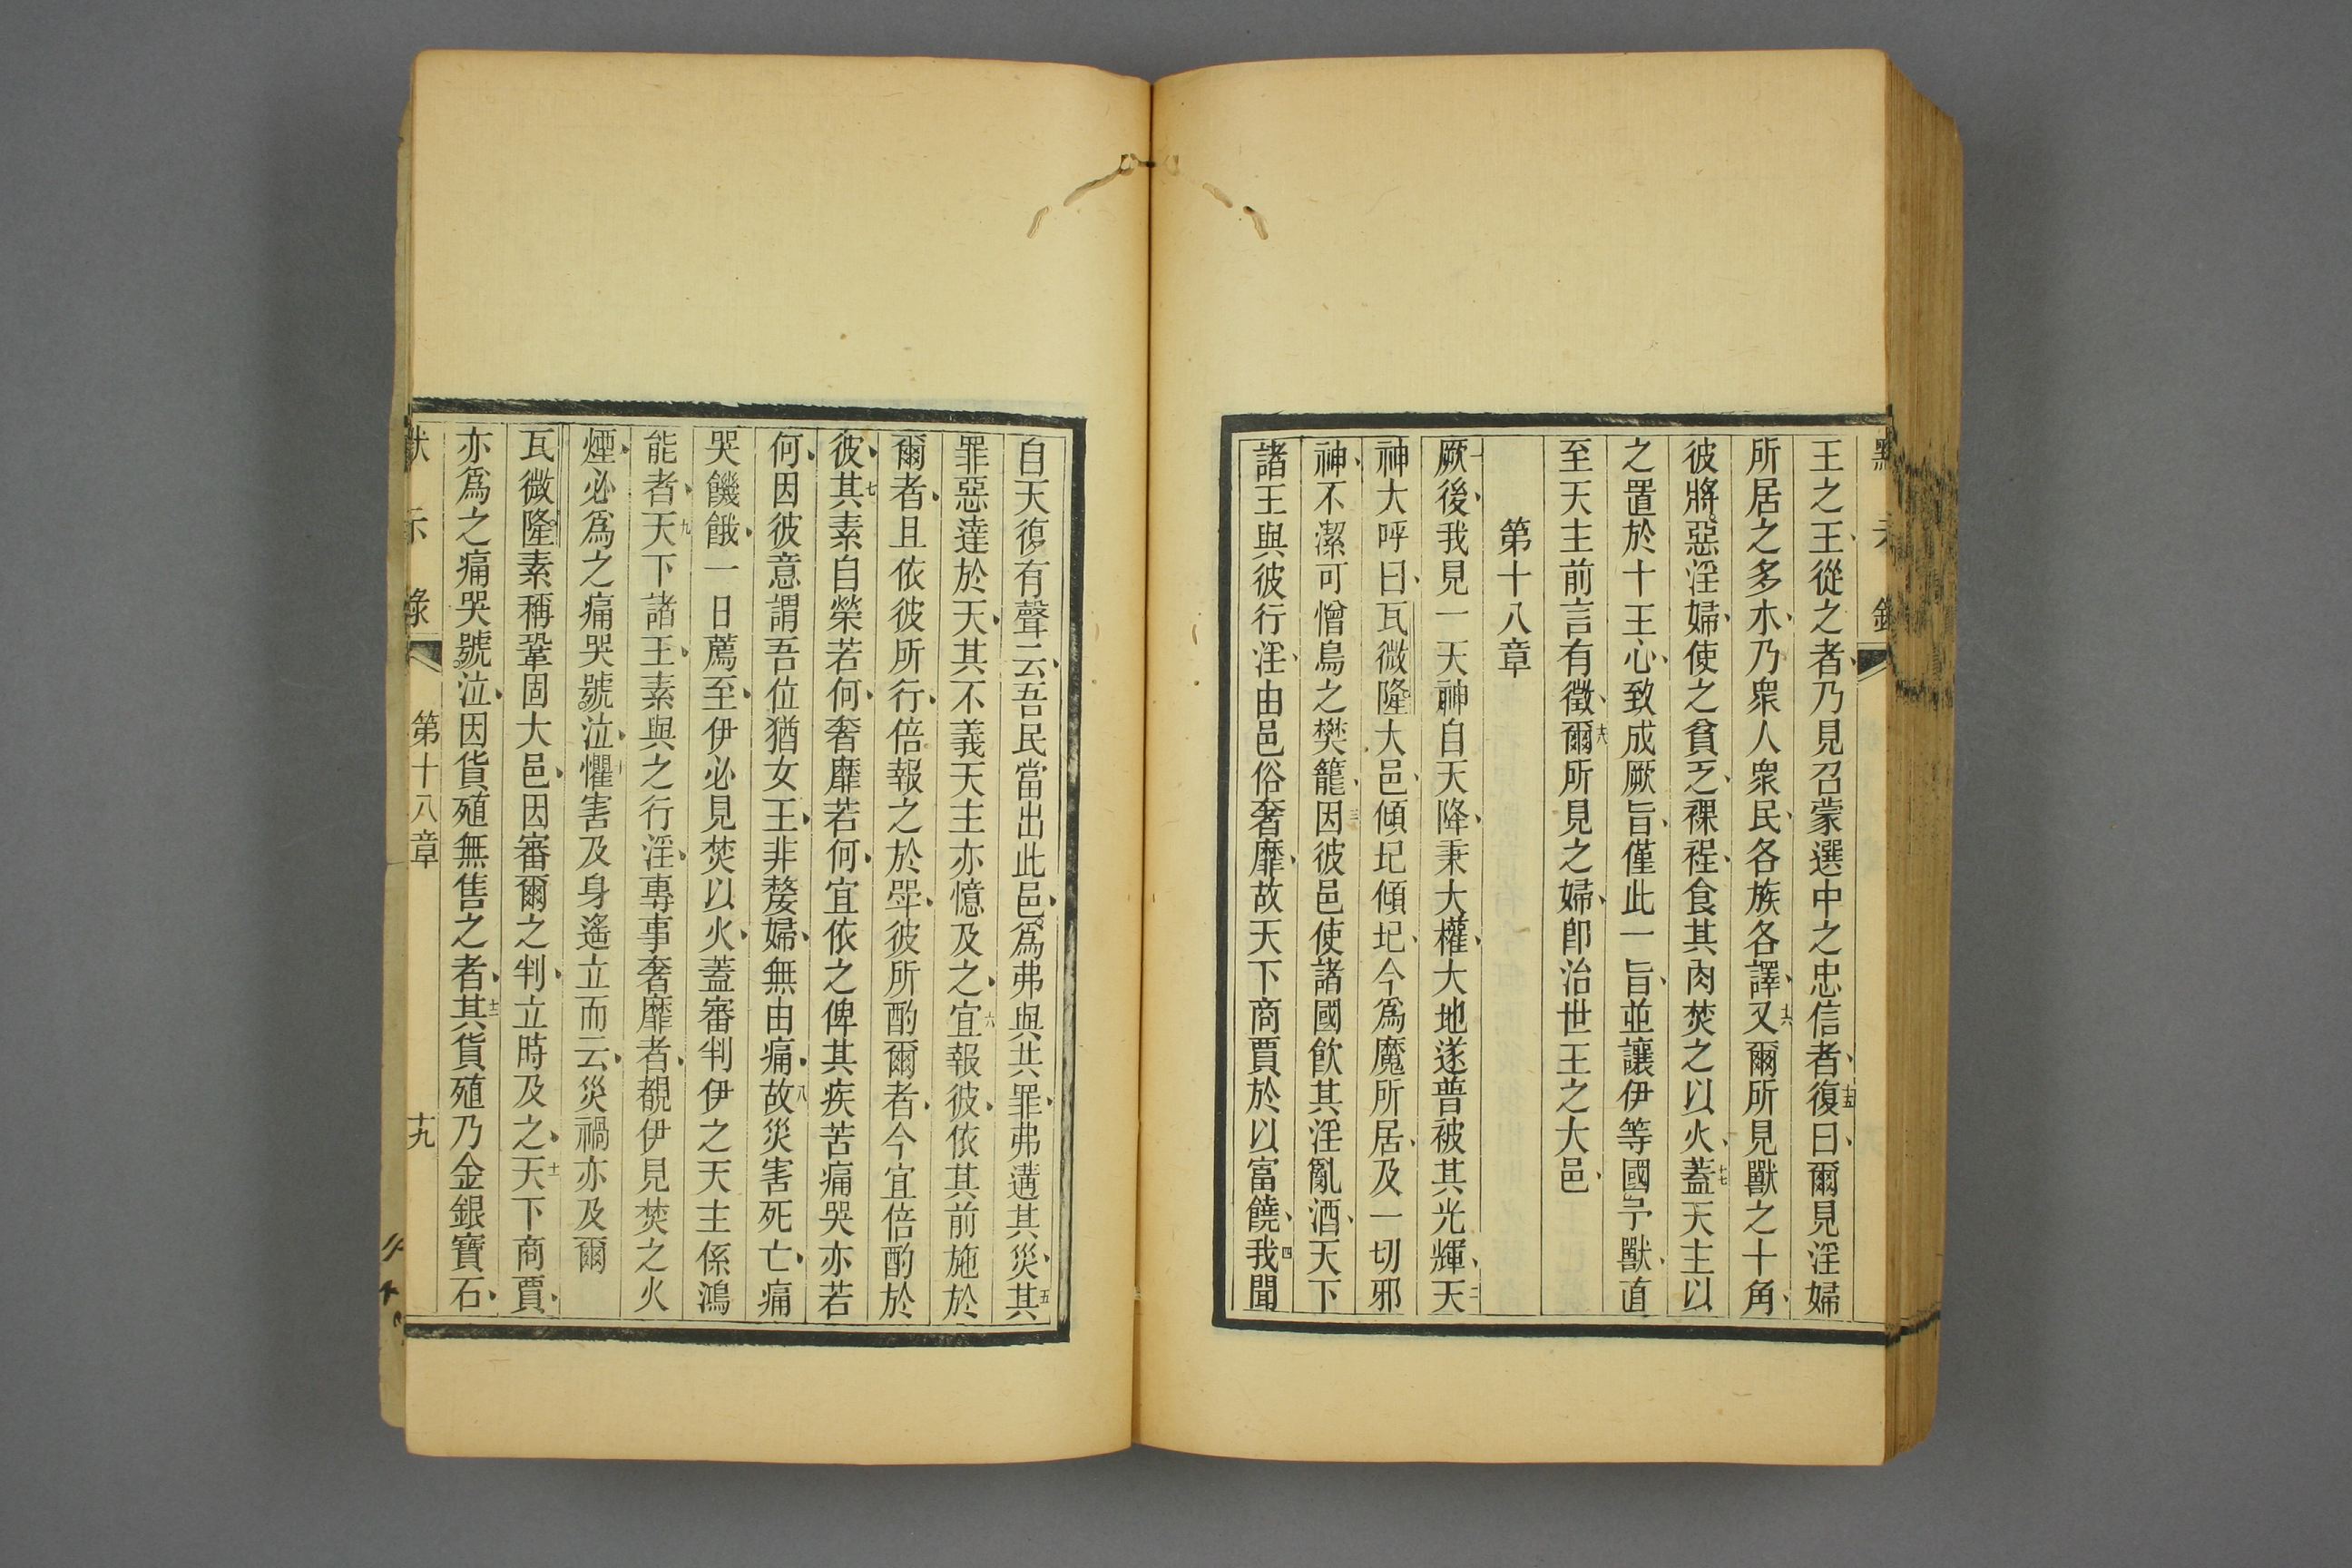 王之王從之者乃見召蒙選中之忠信者復曰爾見淫婦
所居之多水乃衆人衆民各族各譯又爾所見獸之十角
彼將惡淫婦使之貧乏裸裎食其肉焚之以火蓋天主以
之置於十王心致成厥旨僅此一旨並讓伊等國予獸直
至天主前言有徵爾所見之婦卽治世王之大邑
第十八章
厥後我見一天神自天降秉大權大地遂普被其光輝天
神大呼曰瓦微隆大邑傾圮傾圮今爲魔所居及一切邪
神不潔可憎鳥之樊籠因彼邑使諸國飮其淫亂酒天下
諸王與彼行淫由邑俗奢靡故天下商賈於以富饒我聞
自天復有聲云吾民當出此邑爲弗與共罪弗遘其災其
罪惡達於天其不義天主亦憶及之宜報彼依其前施於
爾者且依彼所行倍報之於斝彼所酌爾者今宜倍酌於
彼其素自榮若何奢靡若何宜依之俾其疾苦痛哭亦若
何因彼意謂吾位猶女王非嫠婦無由痛故災害死亡痛
哭饑餓一日薦至伊必見焚以火蓋審判伊之天主係鴻
能者天下諸王素與之行淫專事奢靡者覩伊見焚之火
煙必爲之痛哭號泣懼害及身遙立而云災禍亦及爾
瓦微隆素稱鞏固大邑因審爾之判立時及之天下商賈
亦爲之痛哭號泣因貨殖無售之者其貨殖乃金銀寶石
默示錄 第十八章 十九